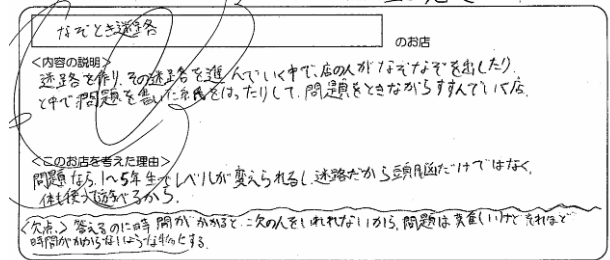 なぞとき迷路
のお店
<内容の説明>
迷路を作り、その迷路を進んでいく中で、店の人がなぞなぞを出したり、
と中で問題を書いた紙をはったりして、問題をときながらすすんでいく店。
<このお店を考えた理由>
問題なら、1~5年生でレベルが変えられるし、迷路だから頭脳だけではなく、
体も使って遊べるから。
<欠点>答えるのに時間がかかると、次の人をいれれないから、問題は難しいけどそれほど
時間がかからないような物とする。